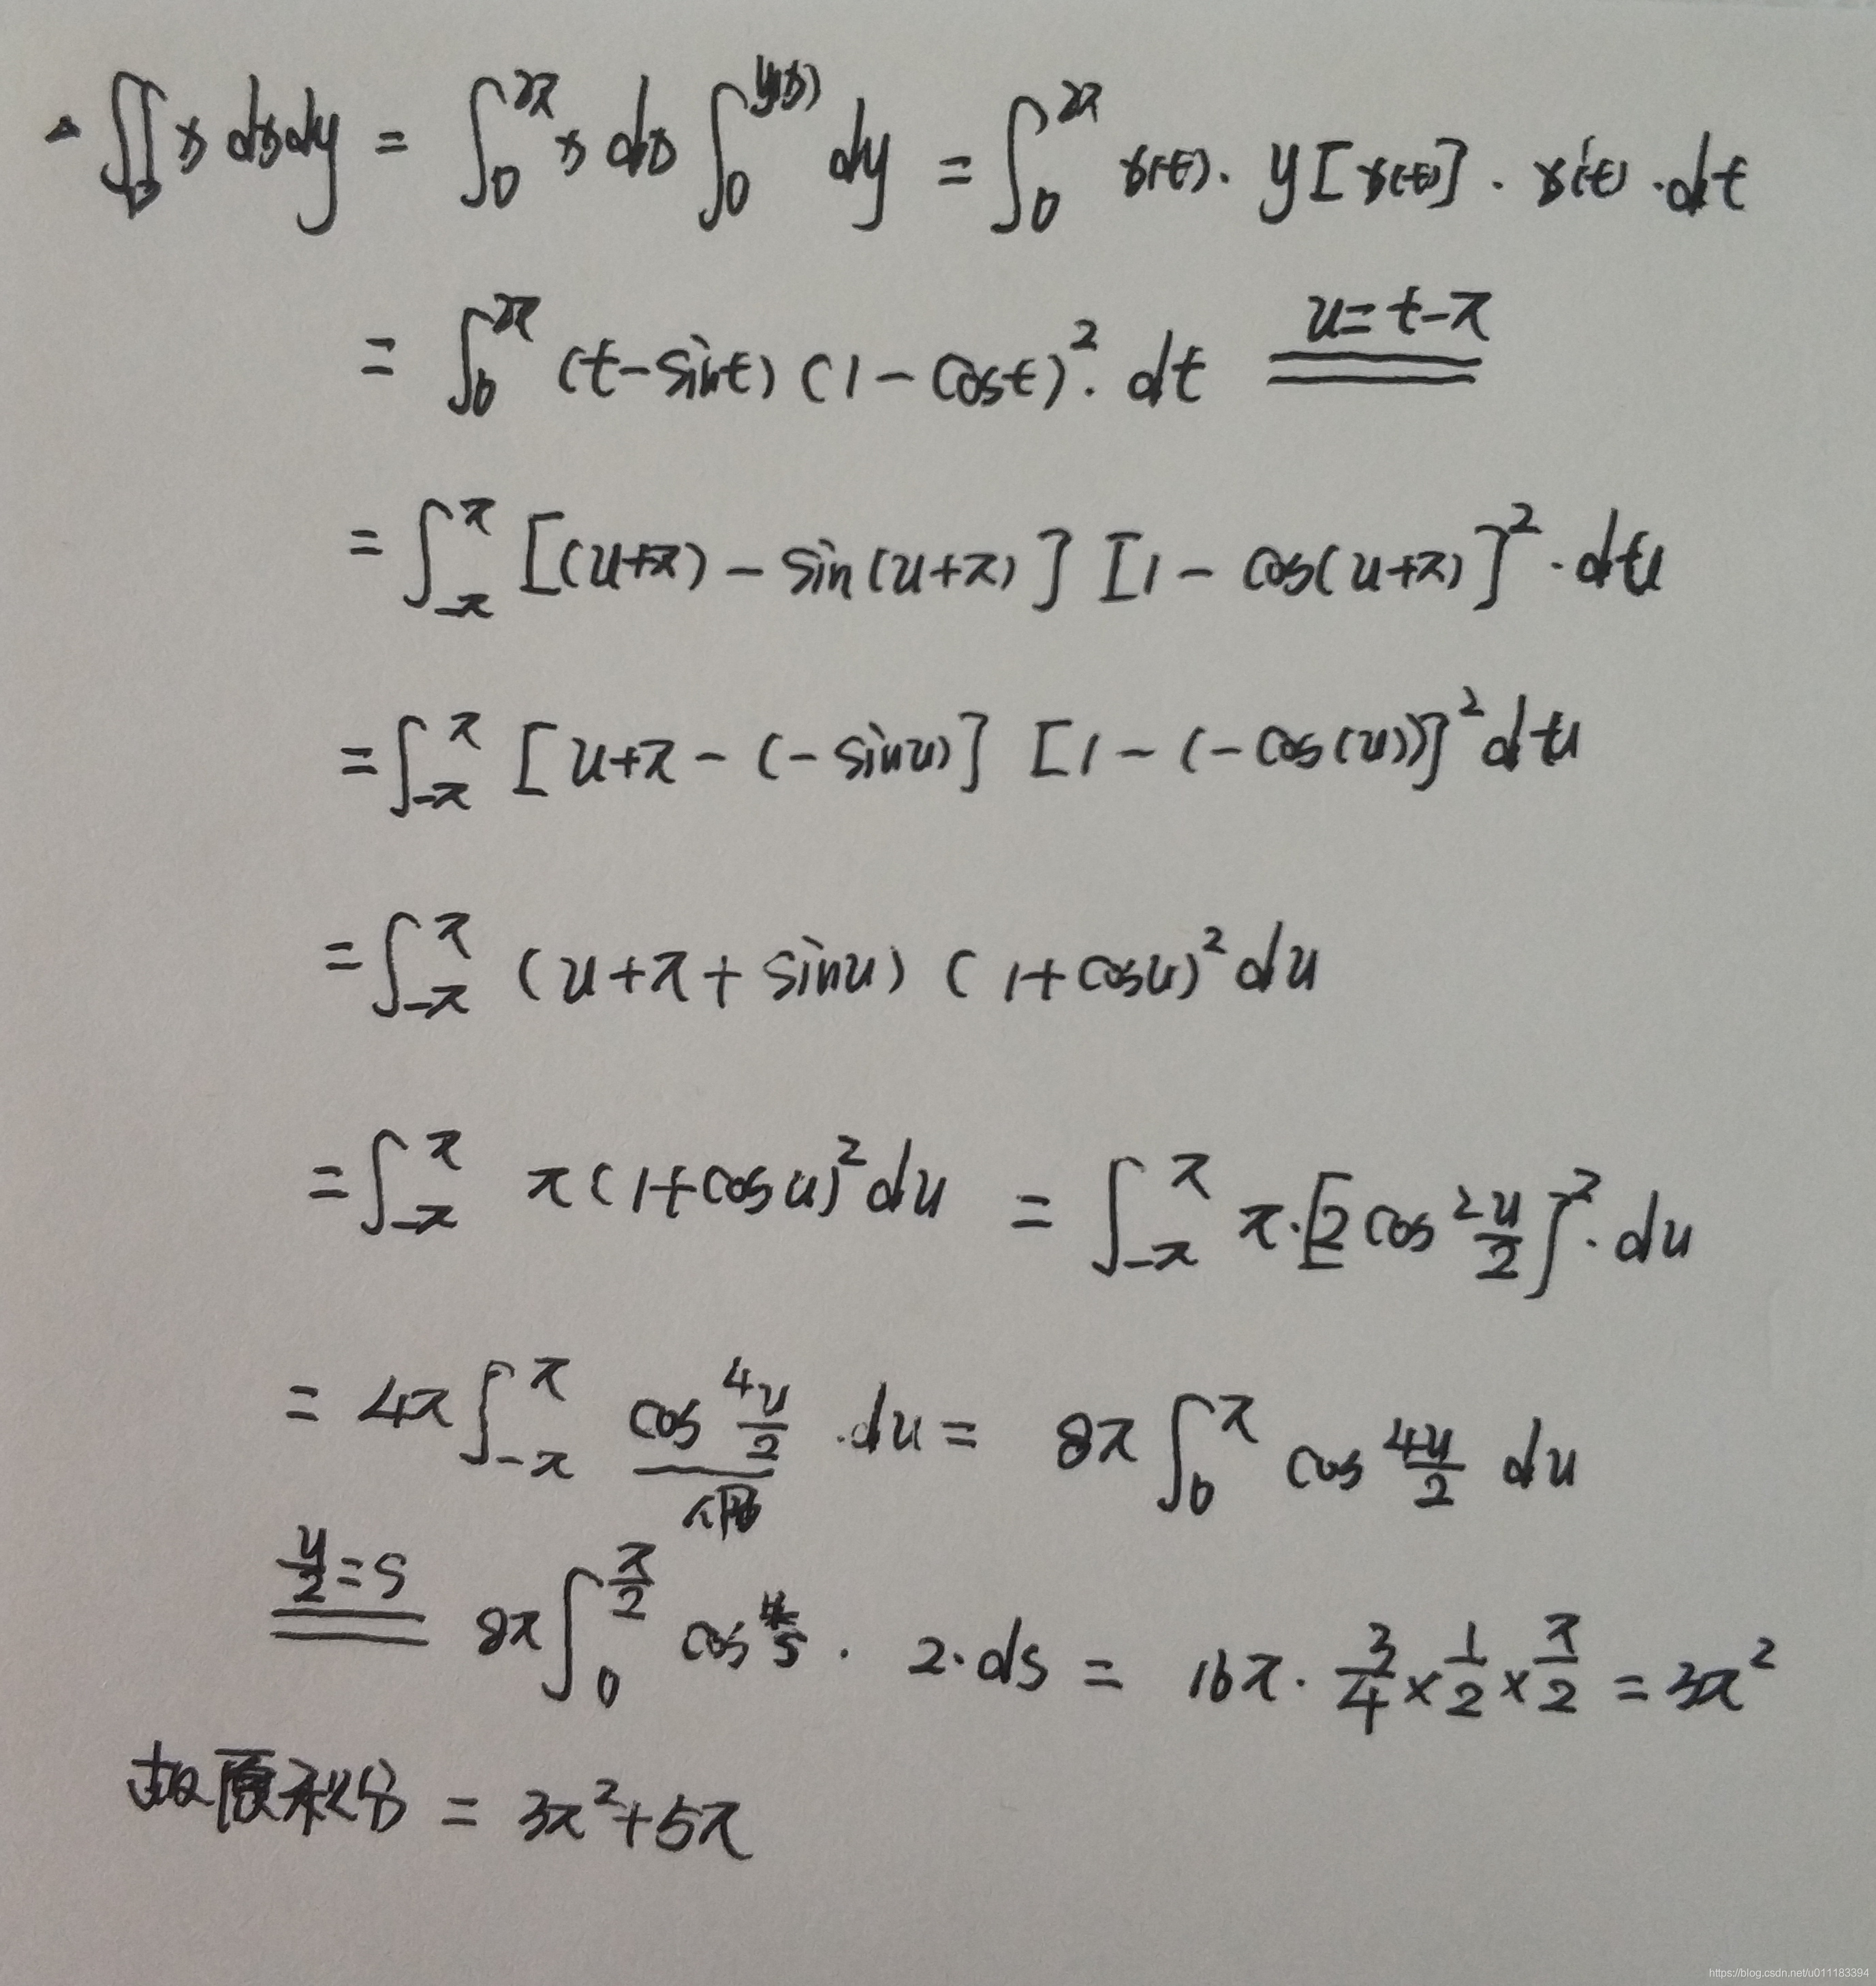 ∬_D x dxdy = ∫_0^{2π} x dx ∫_0^{y(x)} dy = ∫_0^{2π} x(t)· y[x(t)] · x'(t) ·dt
= ∫_0^{2π} (t-sint) (1-cost)^2 · dt \xlongequal{u=t-π}
= ∫_{-π}^{π} [(u+π) - sin(u+π)] [1 - cos(u+π)]^2 · du
= ∫_{-π}^{π} [u+π - (-sinu)] [1 - (-cos(u))]^2 du
= ∫_{-π}^{π} (u+π+sinu) (1+cosu)^2 du
= ∫_{-π}^{π} π(1+cosu)^2 du = ∫_{-π}^{π} π·[2cos^2 \frac{u}{2}]^2 · du
= 4π ∫_{-π}^{π} cos^4 \frac{u}{2} ·du = 8π ∫_0^{π} cos^4 \frac{u}{2} du
\xlongequal{\frac{u}{2}=s} 8π ∫_0^{\frac{π}{2}} cos^4 s · 2·ds = 16π · \frac{3}{4} × \frac{1}{2} × \frac{π}{2} = 3π^2
故原积分 = 3π^2+5π
https://blog.csdn.net/u011183394